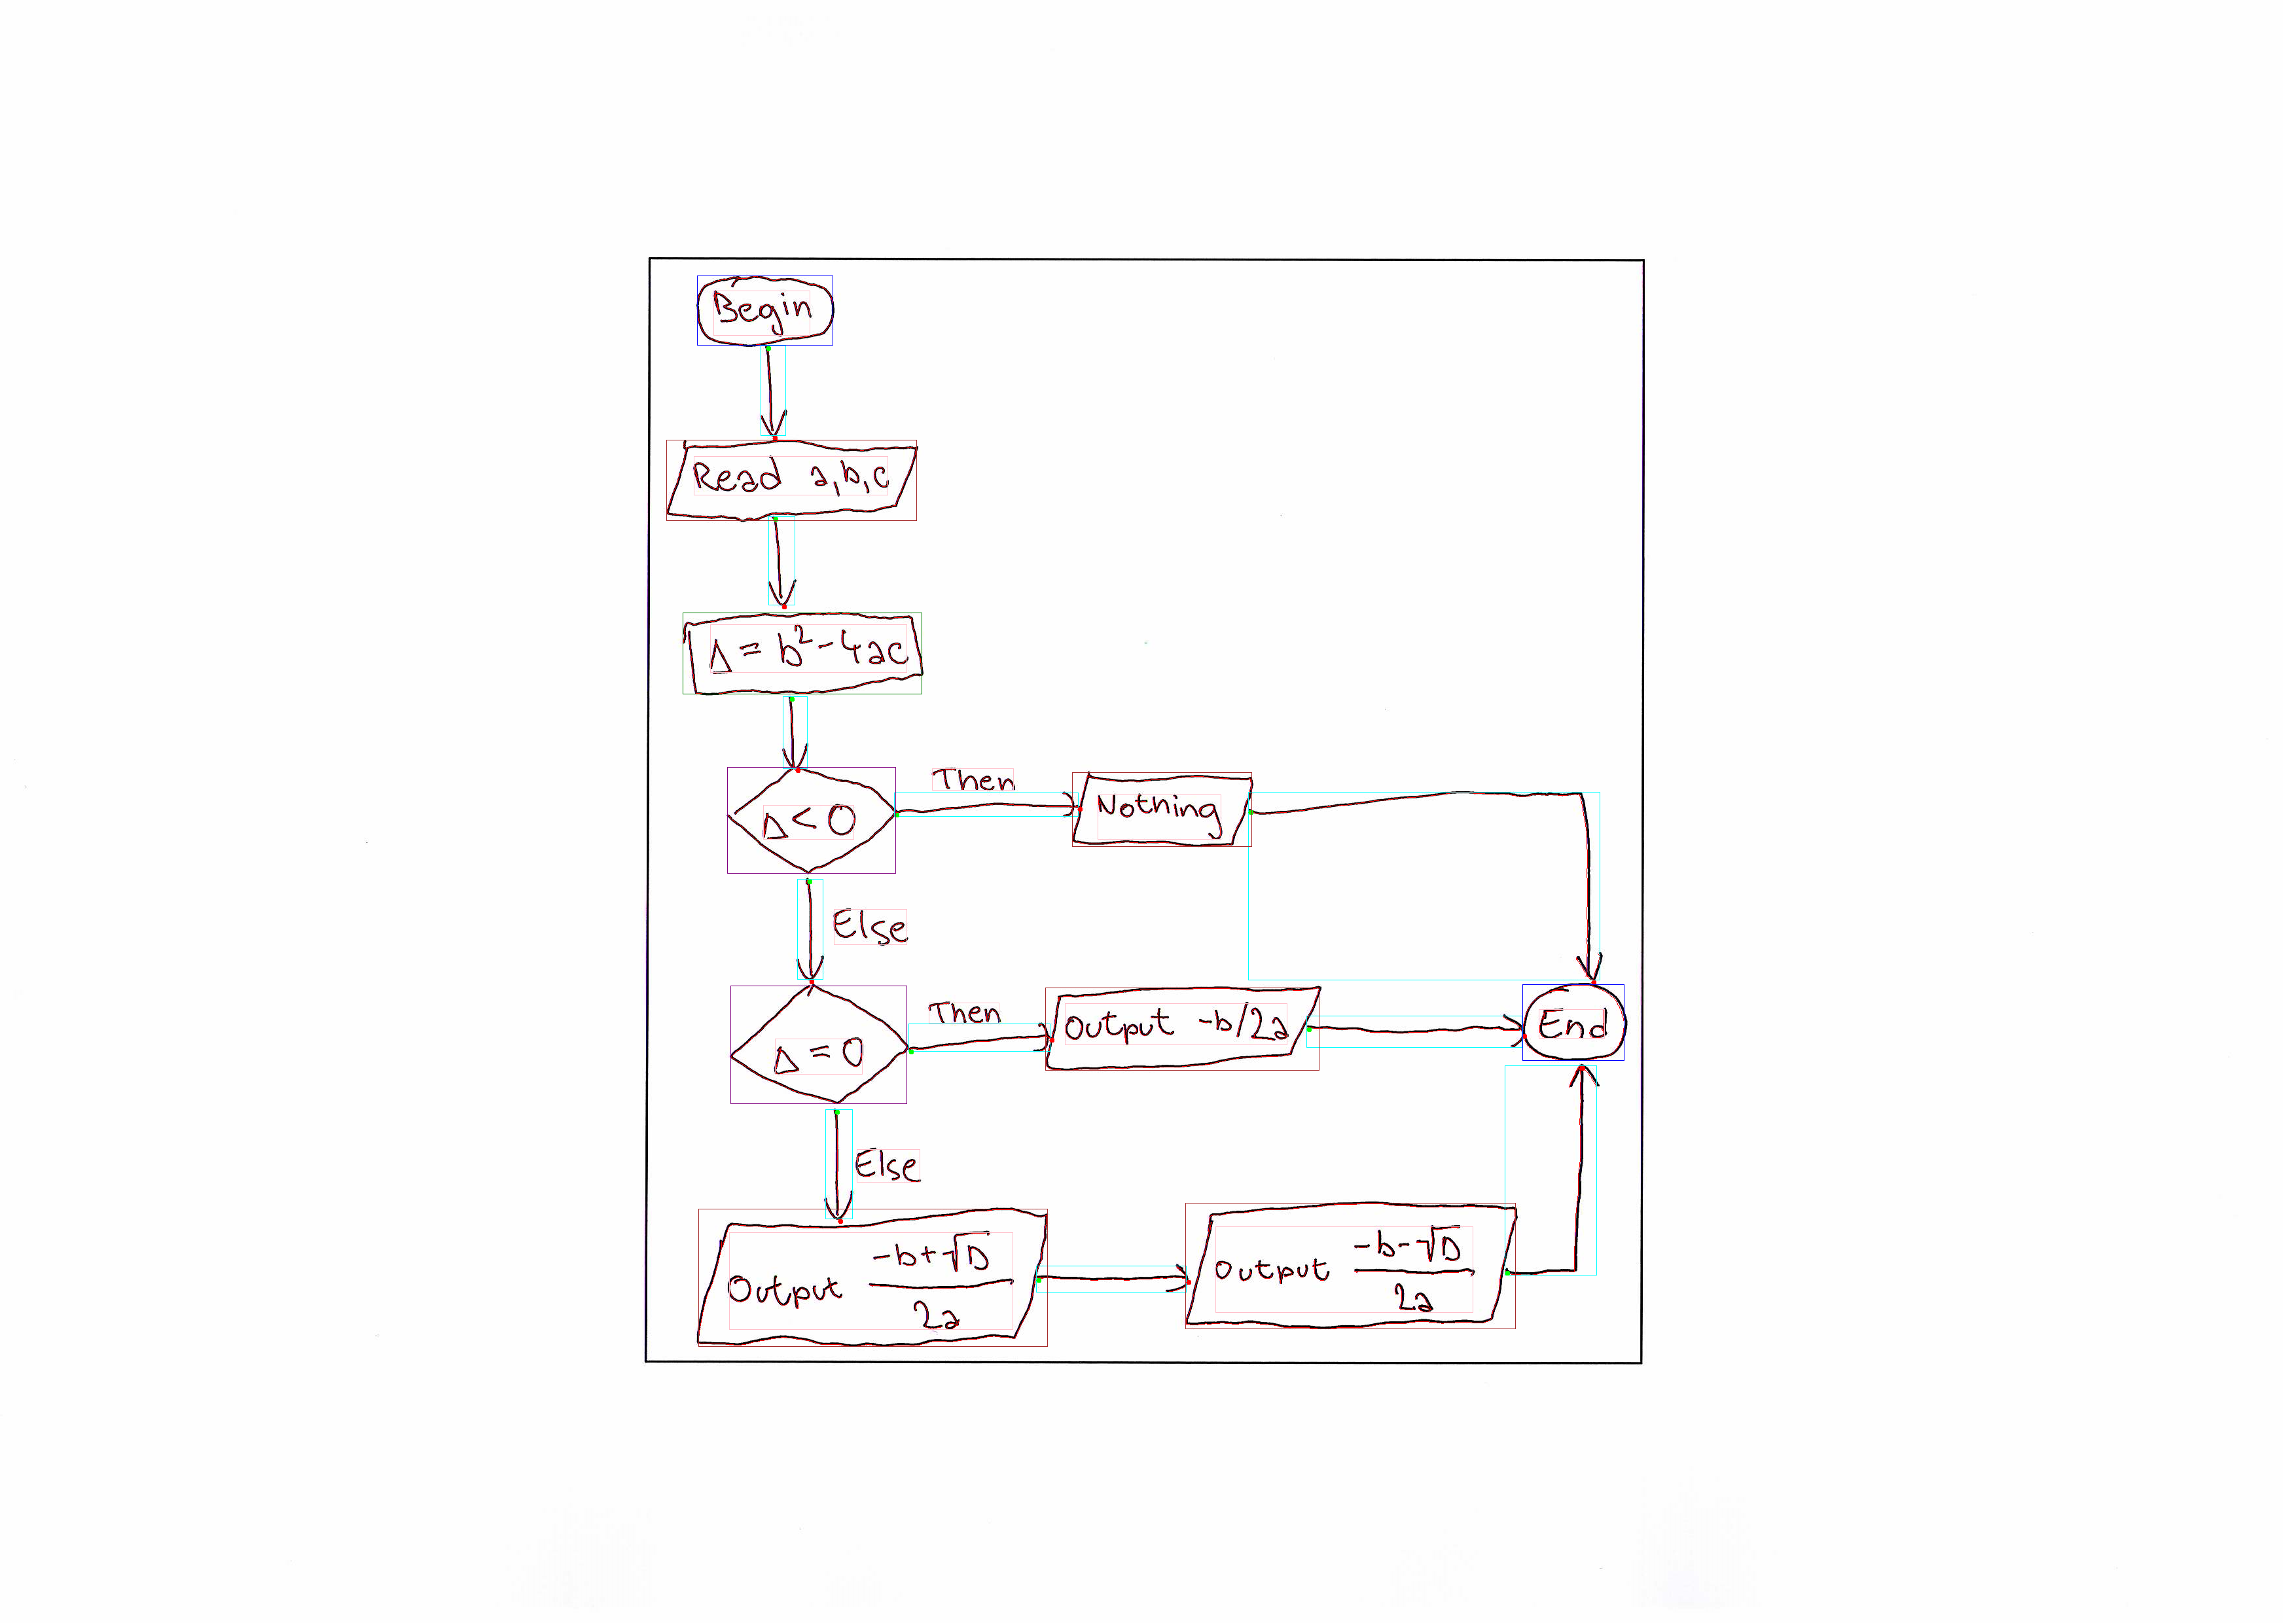 Begin
Read a,b,c
Δ = b² - 4ac
Then
Δ < 0
Nothing
Else
Then
Δ = 0
Output -b/2a
End
Else
Output (-b+√D)/2a
Output (-b-√D)/2a